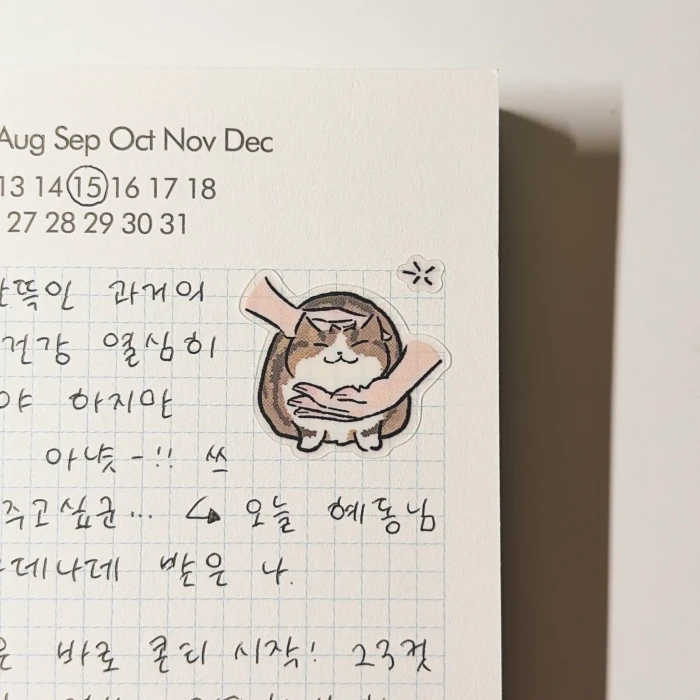 Aug Sep Oct Nov Dec
13 14 15 16 17 18
27 28 29 30 31
과거의
건강 열심히
야 하지만
아냣-!! 쓰
주고싶군... ↳ 오늘 혜동님
데나데 받은 나.
은 바로 콘티 시작! 그종컷